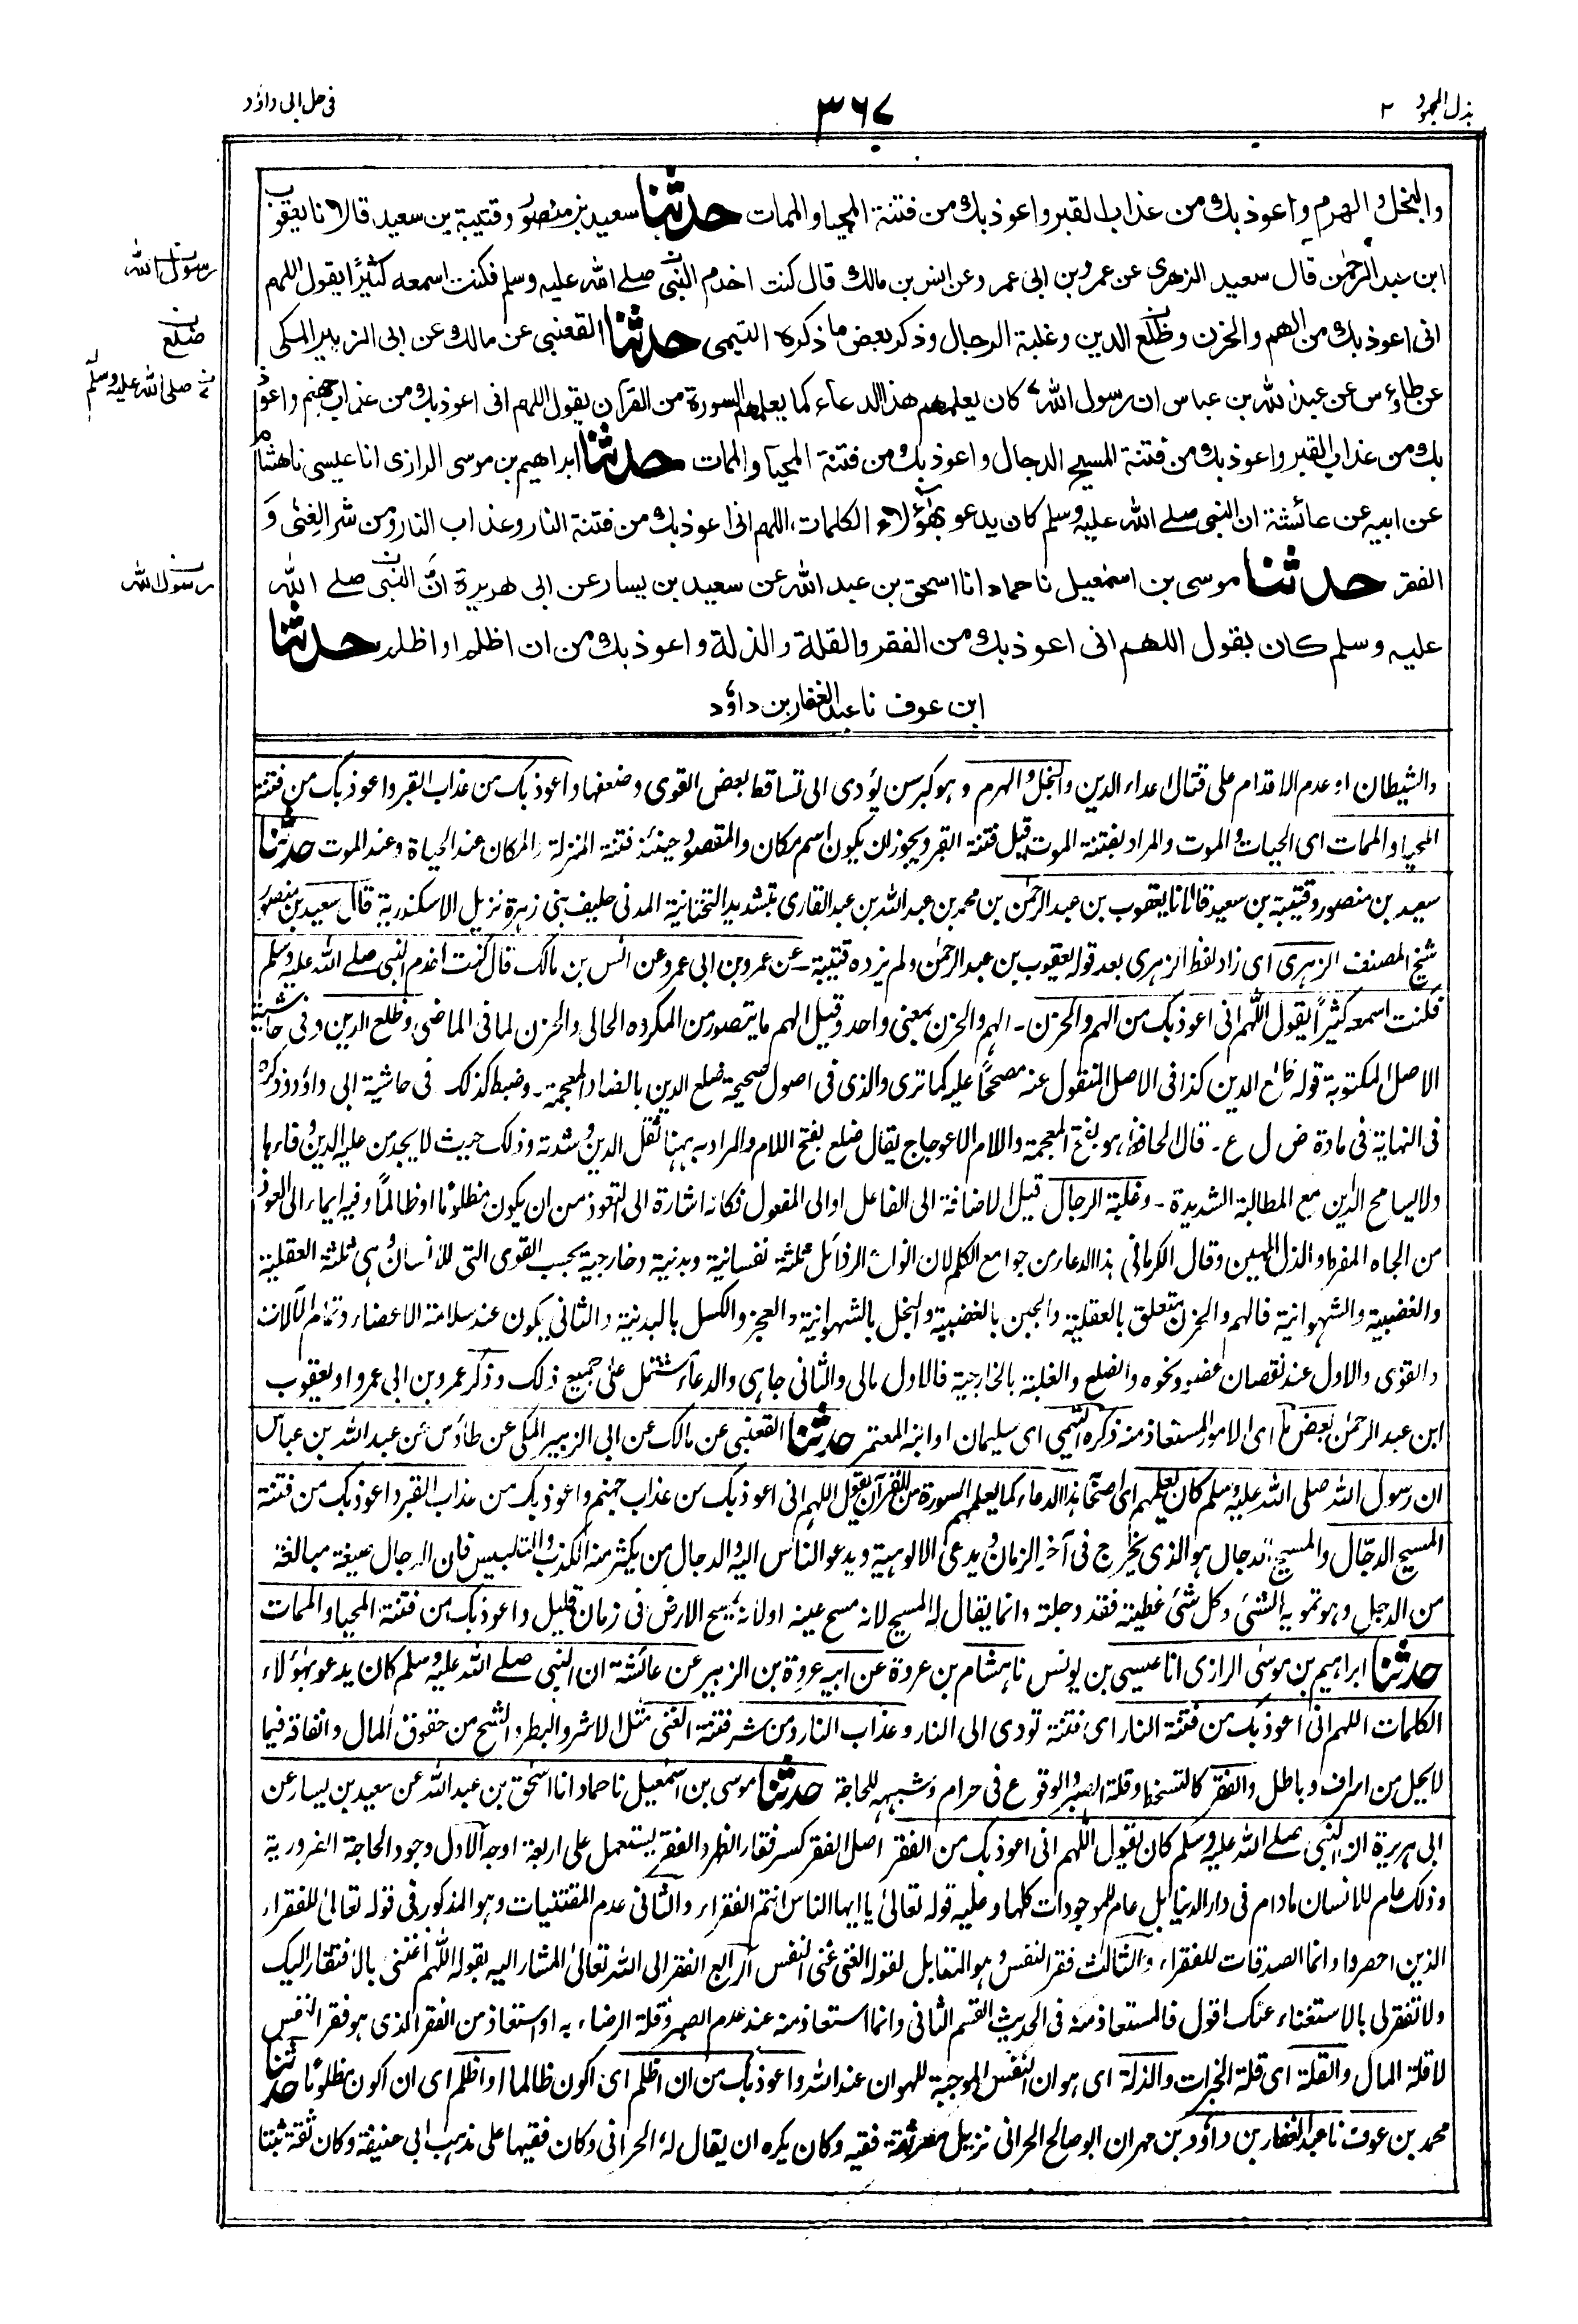 بذل المجهود ٢
٣٦٧
في حل ابى داؤد
والبخل والهرم واعوذ بك من عذاب القبر واعوذ بك من فتنة المحيا والممات حدثنا سعيد بن منصور وقتيبة بن سعيد قالا نا يعقوب
ابن عبد الرحمٰن قال سعيد الزهرى عن عمرو بن ابى عمرو عن انس بن مالك قال كنت اخدم النبى صلى الله عليه وسلم فكنت اسمعه كثيرًا يقول اللهم
رسول الله
انى اعوذ بك من الهم والحزن وظلع الدين وغلبة الرجال وذكر بعض ما ذكره التيمى حدثنا القعنبى عن مالك عن ابى الزبير المكى
ضلع
عن طاوس عن عبد الله بن عباس ان رسول الله كان يعلمهم هذا الدعاء كما يعلمهم السورة من القرآن يقول اللهم انى اعوذ بك من عذاب جهنم واعوذ
صلى الله عليه وسلم
بك من عذاب القبر واعوذ بك من فتنة المسيح الدجال واعوذ بك من فتنة المحيا والممات حدثنا ابراهيم بن موسى الرازى انا عيسى نا هشام
عن ابيه عن عائشة ان النبى صلى الله عليه وسلم كان يدعو بهٰؤلاء الكلمات، اللهم انى اعوذ بك من فتنة النار وعذاب النار ومن شر الغنى و
الفقر حدثنا موسى بن اسمٰعيل نا حماد انا اسحق بن عبد الله عن سعيد بن يسار عن ابى هريرة ان النبى صلى الله
رسول الله
عليه وسلم كان يقول اللهم انى اعوذ بك من الفقر والقلة والذلة واعوذ بك من ان اظلم او اظلم حدثنا
ابن عوف نا عبد الغفار بن داؤد
والشيطان او عدم الاقدام على قتال اعداء الدين والبخل والهرم وهو كبر سن يؤدى الى تساقط بعض القوى وضعفها واعوذ بك من عذاب القبر واعوذ بك من فتنة
المحيا والممات اى الحيات والموت والمراد بفتنة الموت قيل فتنة القبر ويجوز ان يكون اسم مكان والمقصود حينئذ فتنة المنزلة والمكان عند الحياة وعند الموت حدثنا
سعيد بن منصور وقتيبة بن سعيد قالا نا يعقوب بن عبد الرحمٰن بن محمد بن عبد الله بن عبد القارى بتشديد التحتانية المدنى حليف بنى زهرة نزيل الاسكندرية قال سعيد بن منصور
شيخ المصنف الزهرى اى زاد لفظ الزهرى بعد قوله يعقوب بن عبد الرحمٰن ولم يزده قتيبة ـ عن عمرو بن ابى عمرو عن انس بن مالك قال كنت اخدم النبى صلى الله عليه وسلم
فكنت اسمعه كثيراً يقول اللهم انى اعوذ بك من الهم والحزن ـ الهم والحزن بمعنى واحد وقيل الهم ما يتصور من المكروه الحالى والحزن لما فى الماضى وظلع الدين وفى حاشية
الاصل المكتوبة قوله ظلع الدين كذا فى الاصل المنقول عنه مصححًا عليه كما ترى والذى فى اصول صحيحة ضلع الدين بالضاد المعجمة ـ وضبط كذلك فى حاشية ابى داؤد وذكره
فى النهاية فى مادة ض ل ع ـ قال الحافظ هو بفتح المعجمة واللام الاعوجاج يقال ضلع بفتح اللام والمراد به ههنا ثقل الدين وشدته وذلك حيث لا يجد من عليه الدين وفاءها
ولا يسامح الدين مع المطالبة الشديدة ـ وغلبة الرجال قيل الاضافة الى الفاعل او الى المفعول فكانه اشارة الى التعوذ من ان يكون مظلومًا او ظالمًا وفيه ايماء الى العوذ
من الجاه المفرط والذل المهين وقال الكرمانى هذا الدعاء من جوامع الكلم لان انواع الرذائل ثلثة نفسانية وبدنية وخارجية بحسب القوى التى للانسان وهى ثلثة العقلية
والغضبية والشهوانية فالهم والحزن يتعلق بالعقلية والجبن بالغضبية والبخل بالشهوانية والعجز والكسل بالبدنية والثانى يكون عند سلامة الاعضاء وتمام الآلات
والقوى والاول عند نقصان عضو ونحوه والضلع والغلبة بالخارجية فالاول مالى والثانى جاهى والدعاء مشتمل على جميع ذلك وذكر عمرو بن ابى عمرو او يعقوب
ابن عبد الرحمٰن بعض ما اى الامور المستعاذ منه ذكره التيمى اى سليمان او ابنه المعتمر حدثنا القعنبى عن مالك عن ابى الزبير المكى عن طاؤس عن عبد الله بن عباس
ان رسول الله صلى الله عليه وسلم كان يعلمهم اى اصحابه هذا الدعاء كما يعلمهم السورة من القرآن يقول اللهم انى اعوذ بك من عذاب جهنم واعوذ بك من عذاب القبر واعوذ بك من فتنة
المسيح الدجال والمسيح الدجال هو الذى يخرج فى آخر الزمان ويدعى الالوهية ويدعو الناس اليه والدجال من يكثر منه الكذب والتلبيس فان الدجال صيغة مبالغة
من الدجل وهو تمويه الشئ وكل شئ غطيته فقد دجلته وانما يقال له المسيح لانه مسح عينه او لانه يمسح الارض فى زمان قليل واعوذ بك من فتنة المحيا والممات
حدثنا ابراهيم بن موسى الرازى انا عيسى بن يونس نا هشام بن عروة عن ابيه عروة بن الزبير عن عائشة ان النبى صلى الله عليه وسلم كان يدعو بهؤلاء
الكلمات اللهم انى اعوذ بك من فتنة النار اى فتنة تودى الى النار وعذاب النار ومن شر فتنة الغنى مثل الاشر والبطر والشح من حقوق المال وانفاقه فيما
لا يحل من اسراف وباطل والفقر كالتسخط وقلة الصبر والوقوع فى حرام وشبهه للحاجة حدثنا موسى بن اسمٰعيل نا حماد انا اسحٰق بن عبد الله عن سعيد بن يسار عن
ابى هريرة ان النبى صلى الله عليه وسلم كان يقول اللهم انى اعوذ بك من الفقر اصل الفقر كسر فقار الظهر والفقر يستعمل على اربعة اوجه الاول وجود الحاجة الضرورية
وذلك عام للانسان ما دام فى دار الدنيا بل عام للموجودات كلها وعليه قوله تعالىٰ يا ايها الناس انتم الفقراء والثانى عدم المقتنيات وهو المذكور فى قوله تعالىٰ للفقراء
الذين احصروا وانما الصدقات للفقراء والثالث فقر النفس وهو المقابل لقوله الغنى غنى النفس الرابع الفقر الى الله تعالىٰ المشار اليه بقوله اللهم اغننى بالافتقار اليك
ولا تفقرنى بالاستغناء عنك اقول فالمستعاذ منه فى الحديث القسم الثانى وانما استعاذ منه عند عدم الصبر وقلة الرضاء به او استعاذ من الفقر الذى هو فقر النفس
لا قلة المال والقلة اى قلة الخيرات والذلة اى هوان النفس الموجبة للهوان عند الله واعوذ بك من ان اظلم اى اكون ظالما او اظلم اى ان اكون مظلومًا حدثنا
محمد بن عوف نا عبد الغفار بن داؤد بن مهران ابو صالح الحرانى نزيل مصر ثقة فقيه وكان يكره ان يقال له الحرانى وكان فقيها على مذهب ابى حنيفة وكان ثقة ثبتا